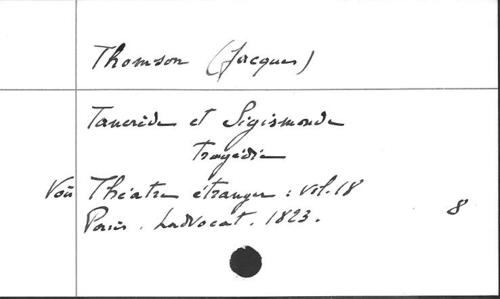 Thomson (Jacques)
Tancrède et Sigismonde
Tragédie
Voir Théatre étranger : vol. 18
Paris. Ladvocat. 1823.
8